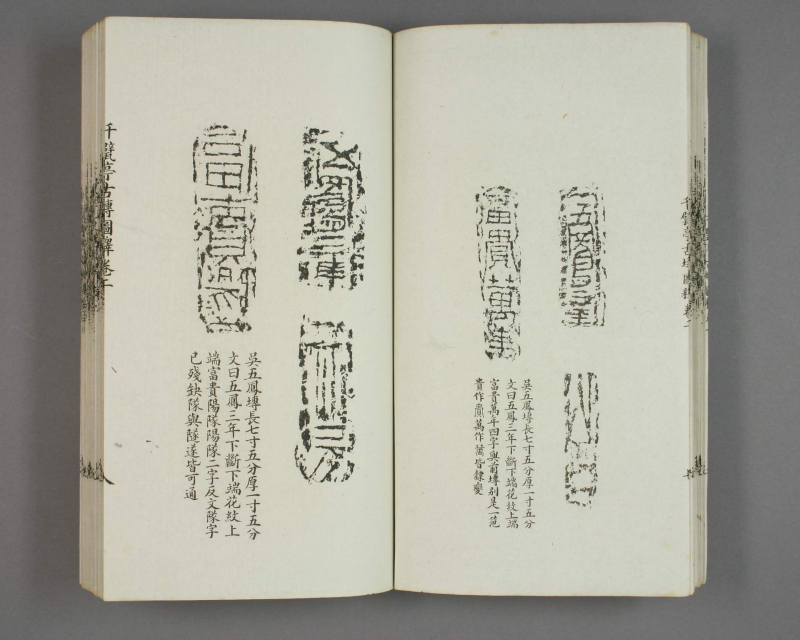 五鳳三年
富貴萬年
吳五鳳塼長七寸五分厚一寸五分
文曰五鳳三年下斷下端花紋上端
富貴萬年四字與前塼別是一范
貴作䝿萬作萬皆隸變
五鳳三年
富貴
吳五鳳塼長七寸五分厚一寸五分
文曰五鳳三年下斷下端花紋上
端富貴陽隊陽隊二字反文隊字
已殘缺隊與隧遂皆可通
千甓亭古塼圖釋卷二